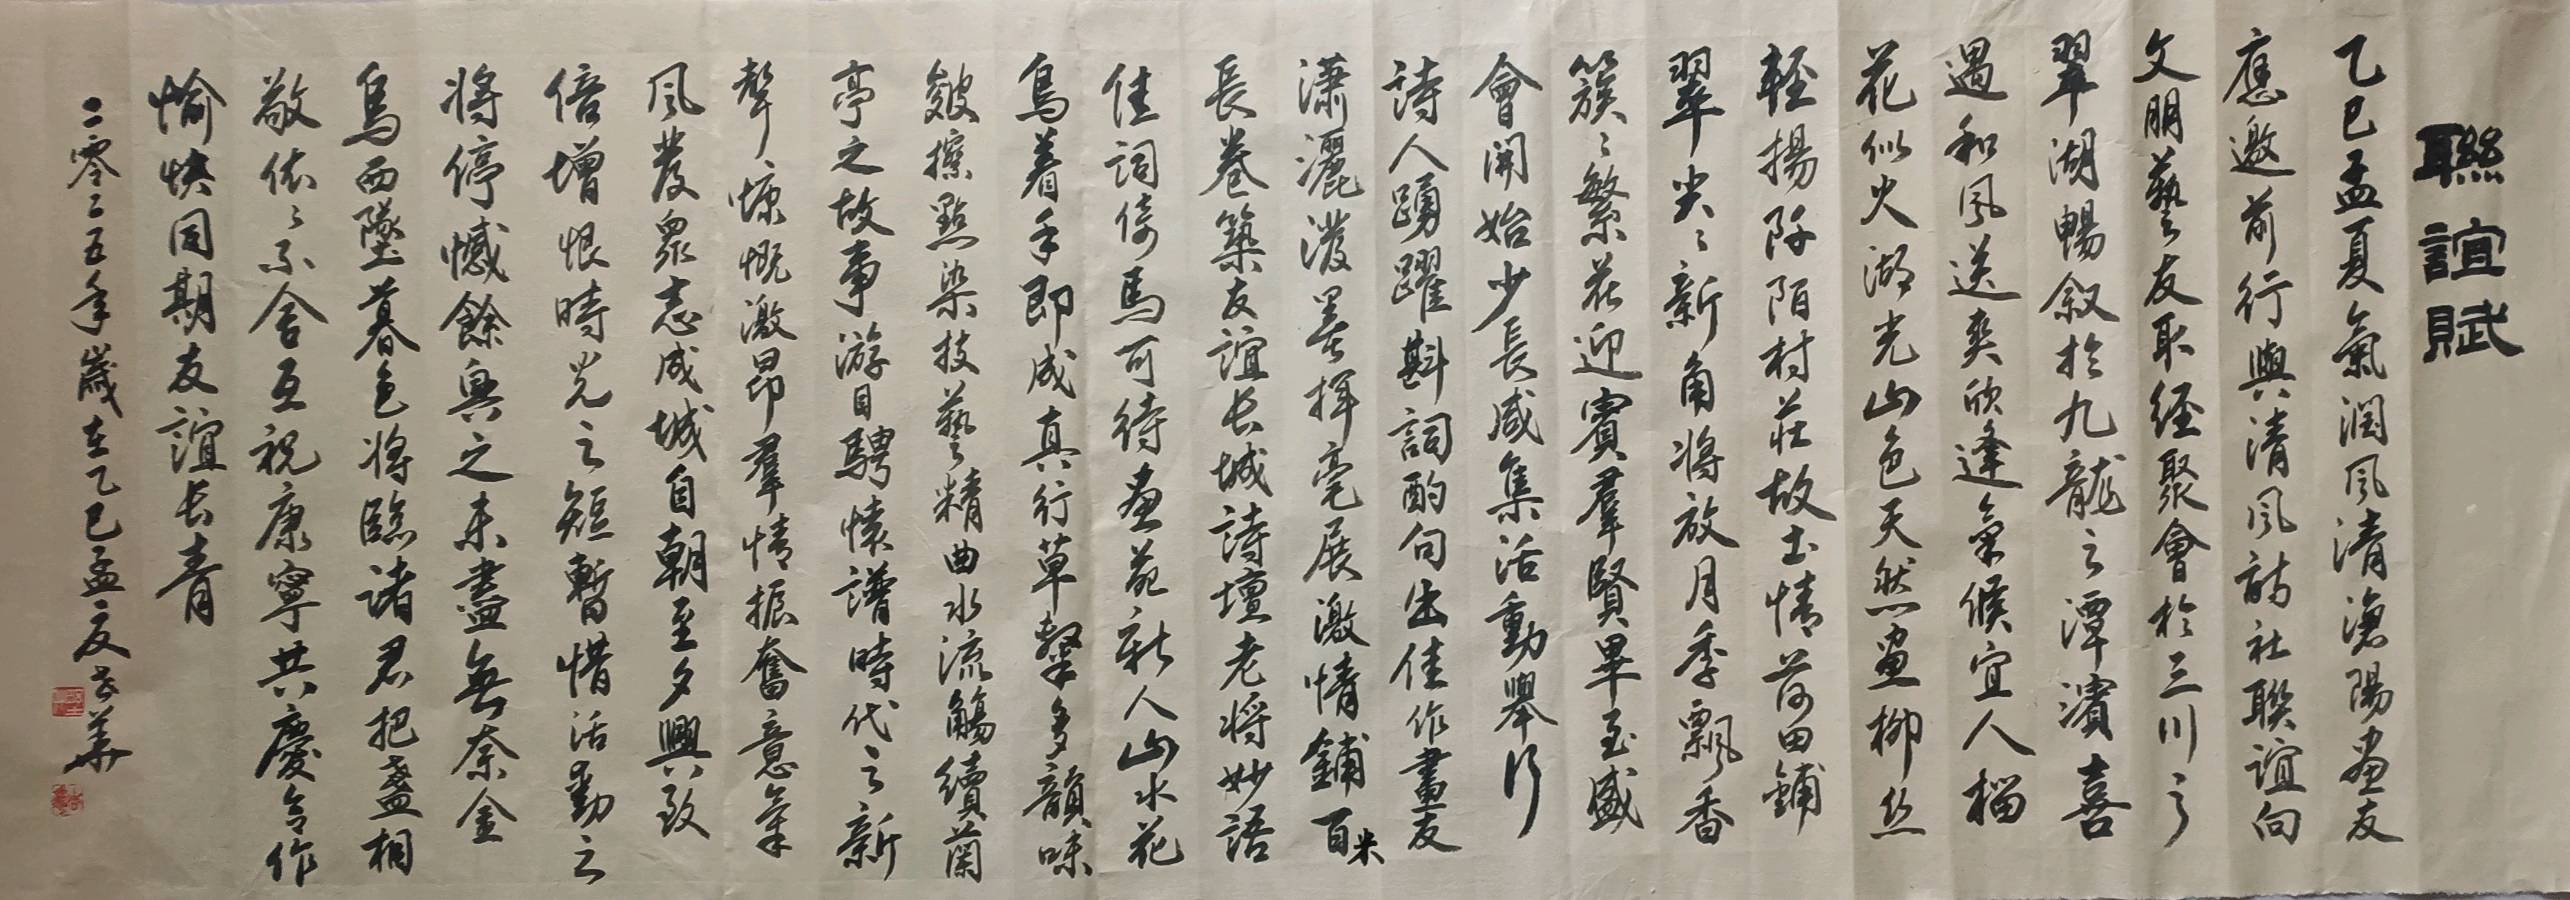 聯誼賦
乙巳孟夏氣潤風清滄陽畫友
應邀前行與清風詩社聯誼向
文朋藝友取經聚會於三川之
翠湖暢叙於九龍之潭濱喜
遇和風送爽欣逢氣候宜人榴
花似火湖光山色天然畫柳丝
輕揚阡陌村莊故土情荷田鋪
翠尖〻新角將放月季飄香
簇〻繁花迎賓羣賢畢至盛
會開始少長咸集活動舉行
詩人踴躍斟詞酌句出佳作畫友
潇灑潑墨揮毫展激情鋪百米
長卷築友誼长城詩壇老將妙語
佳詞倚馬可待畫苑新人山水花
鳥着手即成真行草隸多韻味
皴擦點染技藝精曲水流觴續蘭
亭之故事游目騁懷譜時代之新
聲慷慨激昂羣情振奮意氣
風發衆志成城自朝至夕興致
倍增恨時光之短暫惜活動之
将停憾餘興之未盡無奈金
烏西墜暮色將臨諸君把盞相
敬依〻不舍互祝康寧共慶合作
愉快同期友谊长青
二零二五年歲在乙巳孟夏 華